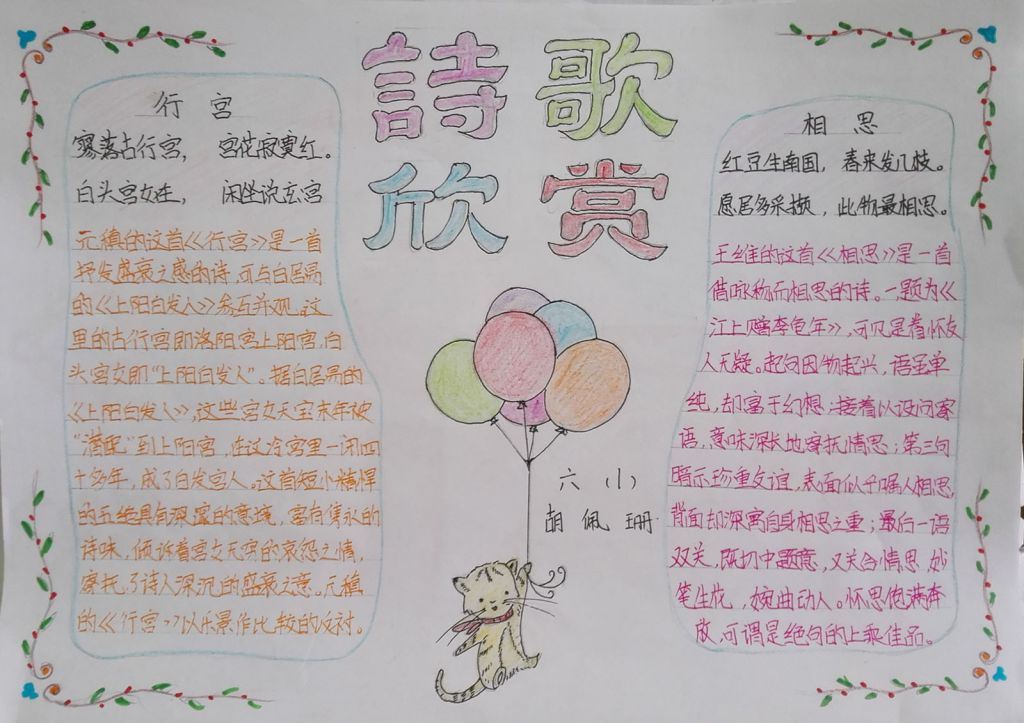 詩歌
欣赏
行宫
寥落古行宫， 宫花寂寞红。
白头宫女在， 闲坐说玄宫
元稹的这首《行宫》是一首
抒发盛衰之感的诗，可与白居易
的《上阳白发人》参互并观。这
里的古行宫即洛阳宫上阳宫，白
头宫女即“上阳白发人”。据白居易的
《上阳白发人》，这些宫女天宝末年被
“潜配”到上阳宫，在这冷宫里一闭四
十多年，成了白发宫人。这首短小精悍
的五绝具有深邃的意境，富有隽永的
诗味，倾诉着宫女无穷的哀怨之情，
寄托了诗人深沉的盛衰之意。元稹
的《行宫》以乐景作比较的反衬。
六（1）
胡佩珊
相思
红豆生南国， 春来发几枝。
愿君多采撷， 此物最相思。
王维的这首《相思》是一首
借咏物而相思的诗。一题为《
江上赠李龟年》，可见是眷怀友
人无疑。起句因物起兴，语虽单
纯，却富于幻想；接着以设问寄
语，意味深长地寄托情思；第三句
暗示珍重友谊，表面似乎嘱人相思，
背面却深寓自身相思之重；最后一语
双关，既切中题意，又关合情思，妙
笔生花，婉曲动人。怀思饱满奔
放，可谓是绝句的上乘佳品。